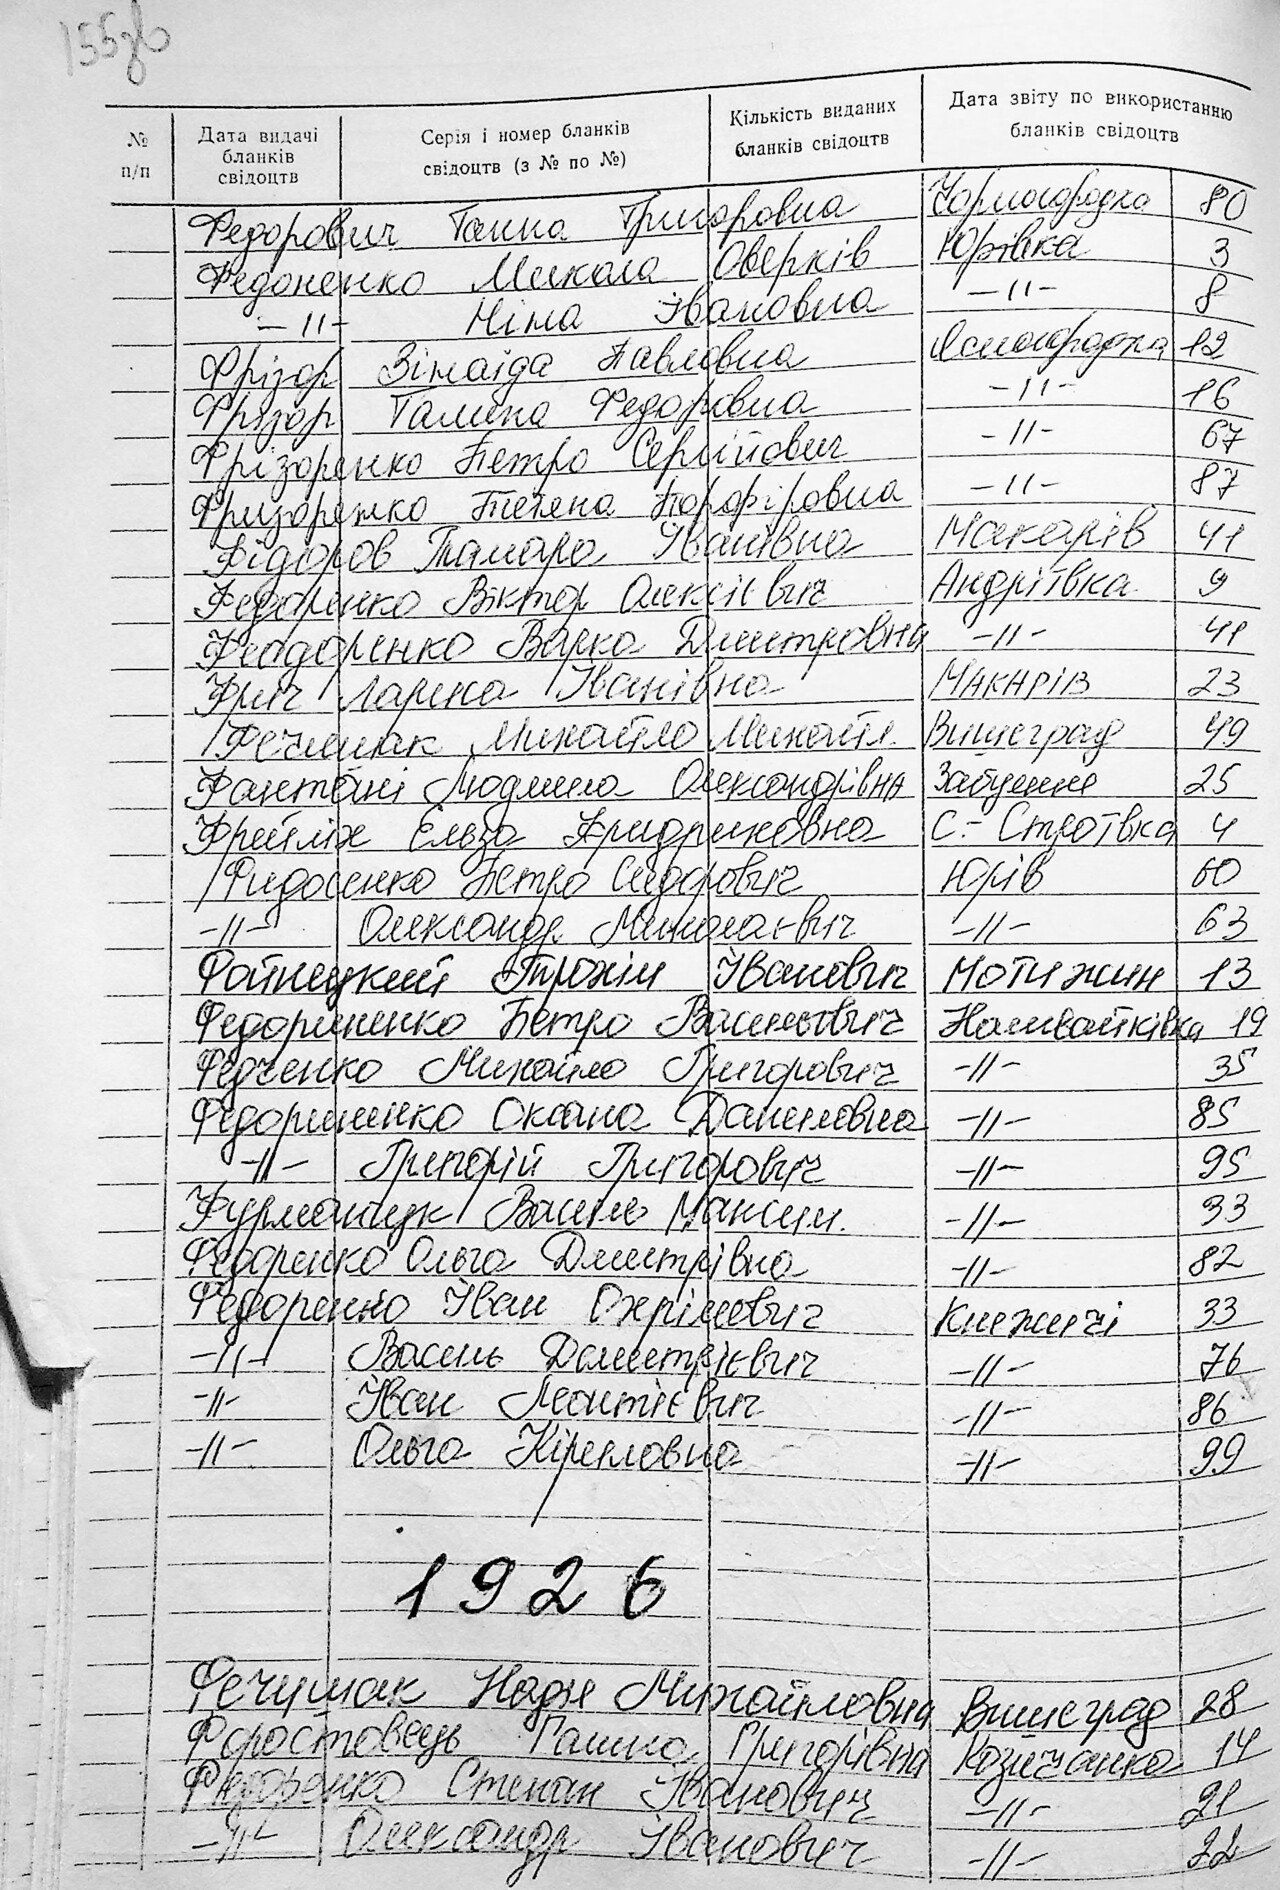 155зв
№ п/п
Дата видачі бланків свідоцтв
Серія і номер бланків свідоцтв (з № по №)
Кількість виданих бланків свідоцтв
Дата звіту по використанню бланків свідоцтв
Федорович Ганна Григоровна Чорногородка 80
Федоненко Микола Оверків Юрівка 3
-//- Ніна Івановна -//- 8
Фрізор Зінаїда Павловна Ясногородка 12
Фрізор Галина Федоровна -//- 16
Фрізоренко Петро Сергійович -//- 67
Фризоренко Тетяна Порфіровна -//- 87
Фідоров Тамара Іванівна Макарів 41
Федоренко Віктор Олексієвич Андріївка 9
Феодоренко Варка Дмитровна -//- 41
Фріч Лариса Іванівна Макарів 23
Фечишак Михайло Михайл. Вишеград 49
Фантані Людмила Олександрівна Забуяння 25
Фрейліх Ельза Фридриховна С.-Строївка 4
Фидосенко Петро Сидорович Юрів 60
-//- Олександр Миколаєвич -//- 63
Файнецкий Трохім Іванович Мотижин 13
Федориненко Петро Васильович Наливайківка 19
Федченко Михайло Григорович -//- 35
Федориненко Оксана Даниловна -//- 85
-//- Григорій Григорович -//- 95
Фурманчук Василь Максим. -//- 93
Федоренко Ольга Дмитрівна -//- 82
Федоренко Іван Охрімович Княжичі 33
-//- Василь Дмитрієвич -//- 76
-//- Іван Леонтієвич -//- 86
-//- Ольга Кіриловна -//- 99
1926
Фечушак Надя Михайловна Вишеград 28
Форостовець Галина Григорівна Козичанка 14
Федоренко Степан Іванович -//- 21
-//- Олександр Іванович -//- 22